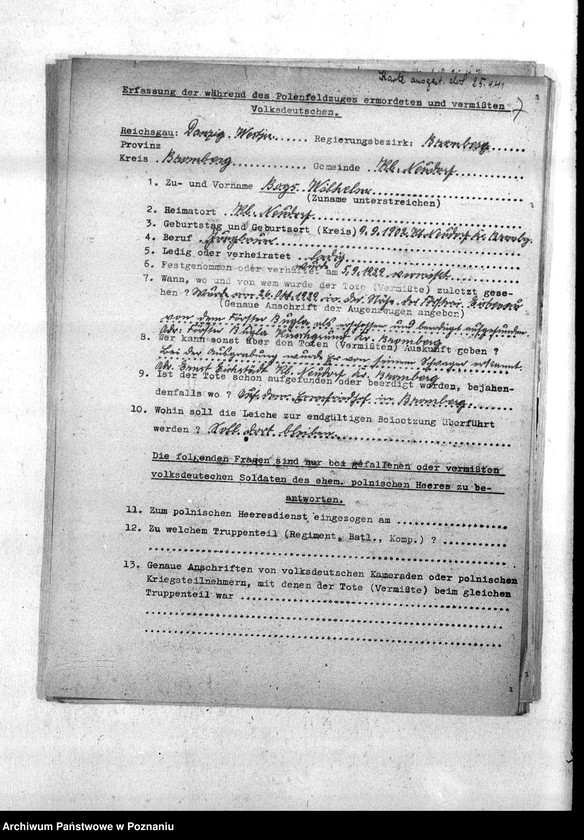 Karte ausgest. 25.1.41
7
Erfassung der während des Polenfeldzuges ermordeten und vermißten
Volksdeutschen.
Reichsgau: Danzig-Westpr. Regierungsbezirk: Bromberg
Provinz
Kreis Bromberg Gemeinde Kl. Neudorf
1. Zu- und Vorname Wilhelm
(Zuname unterstreichen)
2. Heimatort Kl. Neudorf
3. Geburtstag und Geburtsort (Kreis) 9.9.1902 Kl. Neudorf Kr. Bromberg
4. Beruf
5. Ledig oder verheiratet ledig
6. Festgenommen oder verhaftet am 5.9.1939 vermißt
7. Wann, wo und von wem wurde der Tote (Vermißte) zuletzt gese-
hen ? Wurde am 26. Okt. 1939 in der Nähe der Försterei
(Genaue Anschrift der Augenzeugen angeben)
von dem Förster Bugla als erschossen und beerdigt aufgefunden
Adr. Förster Bugla Kr. Bromberg
8. Wer kann sonst über den Toten (Vermißten) Auskunft geben ?
Bei der Ausgrabung wurde er von seinem Schwager erkannt.
Adr. Ernst Kl. Neudorf Kr. Bromberg
9. Ist der Tote schon aufgefunden oder beerdigt worden, bejahen-
denfalls wo ? Auf dem in Bromberg
10. Wohin soll die Leiche zur endgültigen Beisetzung überführt
werden ? Soll dort bleiben
Die folgenden Fragen sind nur bei gefallenen oder vermißten
volksdeutschen Soldaten des ehem. polnischen Heeres zu be-
antworten.
11. Zum polnischen Heeresdienst eingezogen am
12. Zu welchem Truppenteil (Regiment, Batl., Komp.) ?
13. Genaue Anschriften von volksdeutschen Kameraden oder polnischen
Kriegsteilnehmern, mit denen der Tote (Vermißte) beim gleichen
Truppenteil war
Archiwum Państwowe w Poznaniu